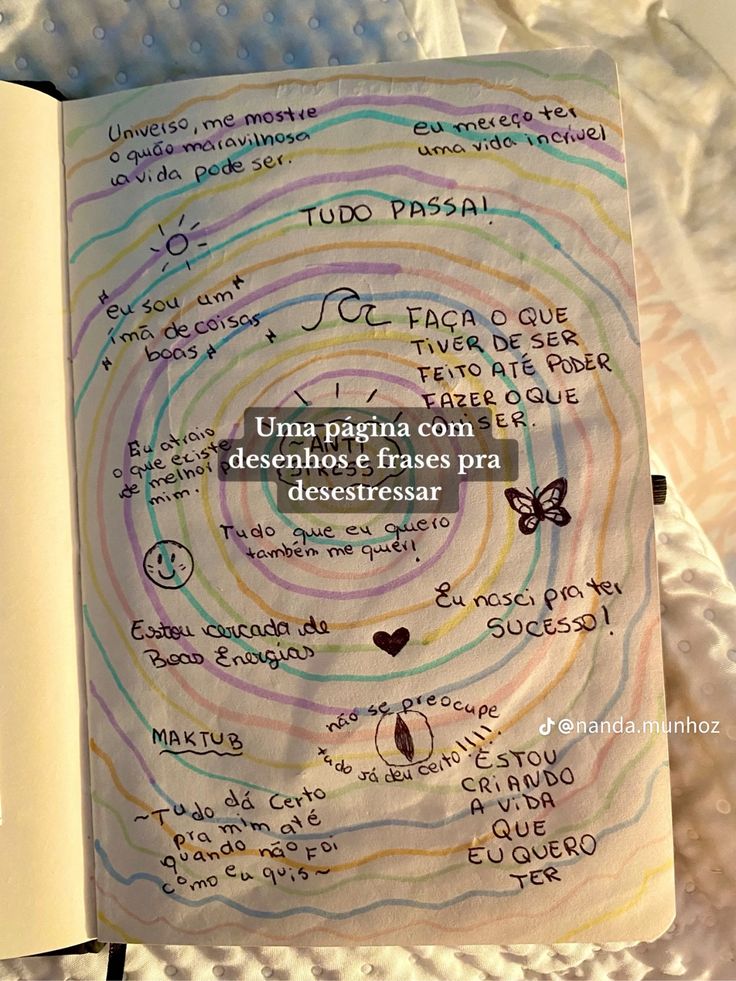 Universo, me mostre
o quão maravilhosa
a vida pode ser.
eu mereço ter
uma vida incrível
TUDO PASSA!
eu sou um
ímã de coisas
boas
FAÇA O QUE
TIVER DE SER
FEITO ATÉ PODER
FAZER O QUE
QUISER.
Uma página com
desenhos e frases pra
desestressar
~ANTI
STRESS
Eu atraio
o que existe
de melhor p
mim.
Tudo que eu quero
também me quer!
Eu nasci pra ter
SUCESSO!
Estou cercada de
Boas Energias
não se preocupe
tudo já deu certo!!!!
@nanda.munhoz
MAKTUB
ESTOU
CRIANDO
A VIDA
QUE
EU QUERO
TER
~Tudo dá certo
pra mim até
quando não foi
como eu quis~